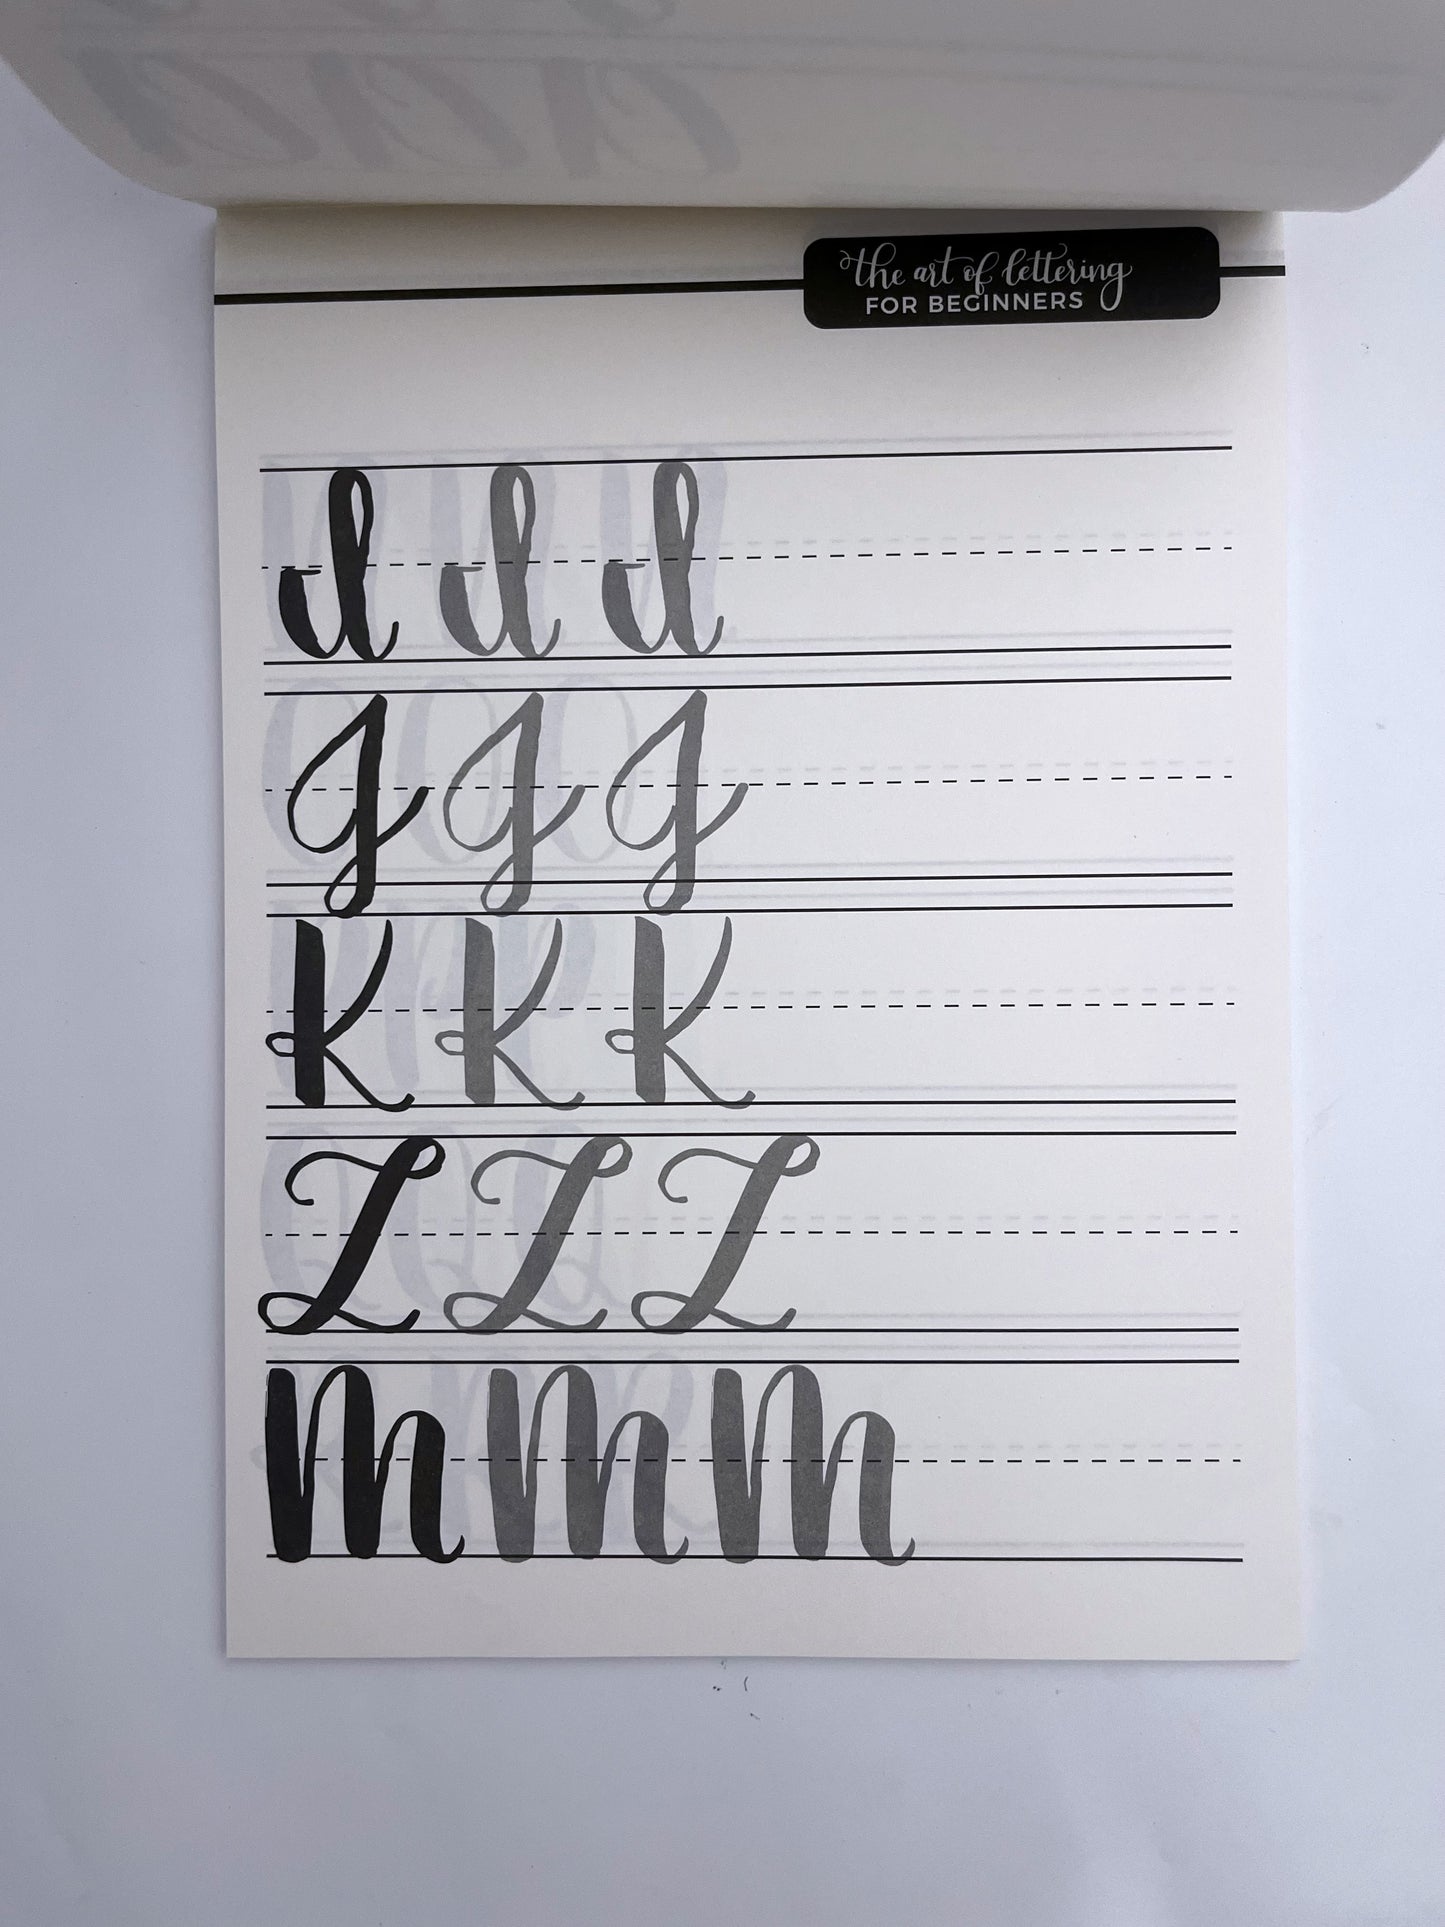 the art of lettering
FOR BEGINNERS
I I I
J J J
K K K
L L L
M M M